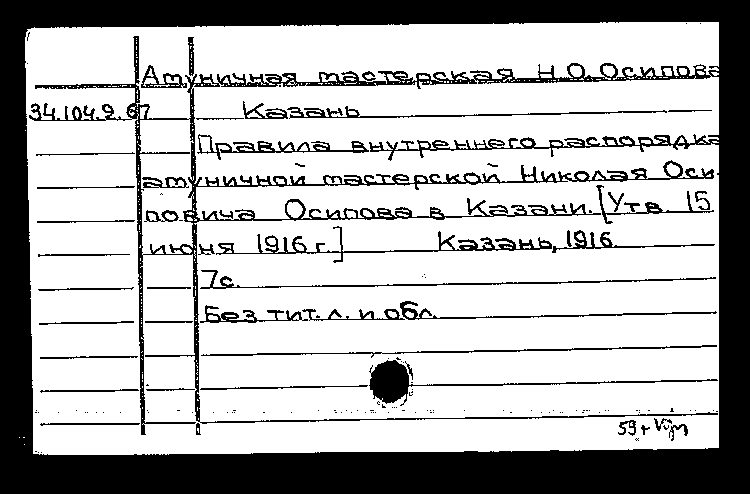 Амуничная мастерская Н.О. Осипова
34.104.9.67 Казань
Правила внутреннего распорядка
амуничной мастерской Николая Оси-
повича Осипова в Казани. [Утв. 15
июня 1916 г.] Казань, 1916.
7с.
Без тит. л. и обл.